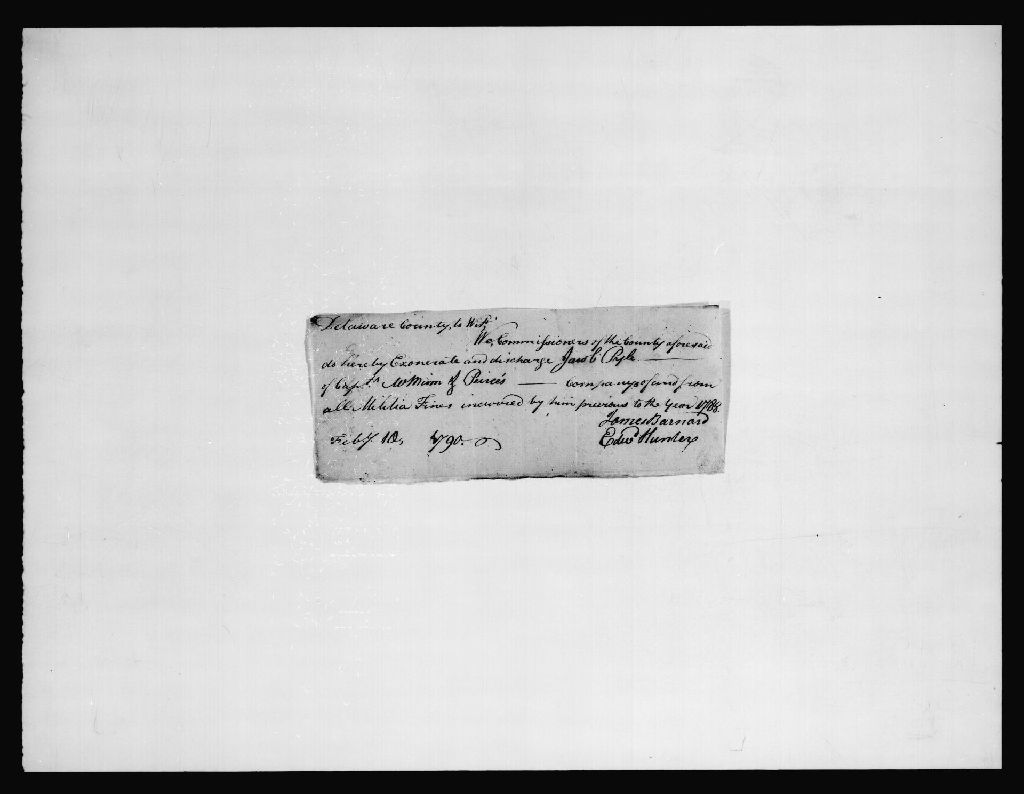 Delaware County, to Wit,
We, Commissioners of the County aforesaid
do hereby Exonerate and discharge Jacob Pyle
of Capt.n William Peirce's Company of and from
all Militia Fines incurred by him previous to the Year 1788.
James Barnard
Feby 10, 1790. Edwd Hunter